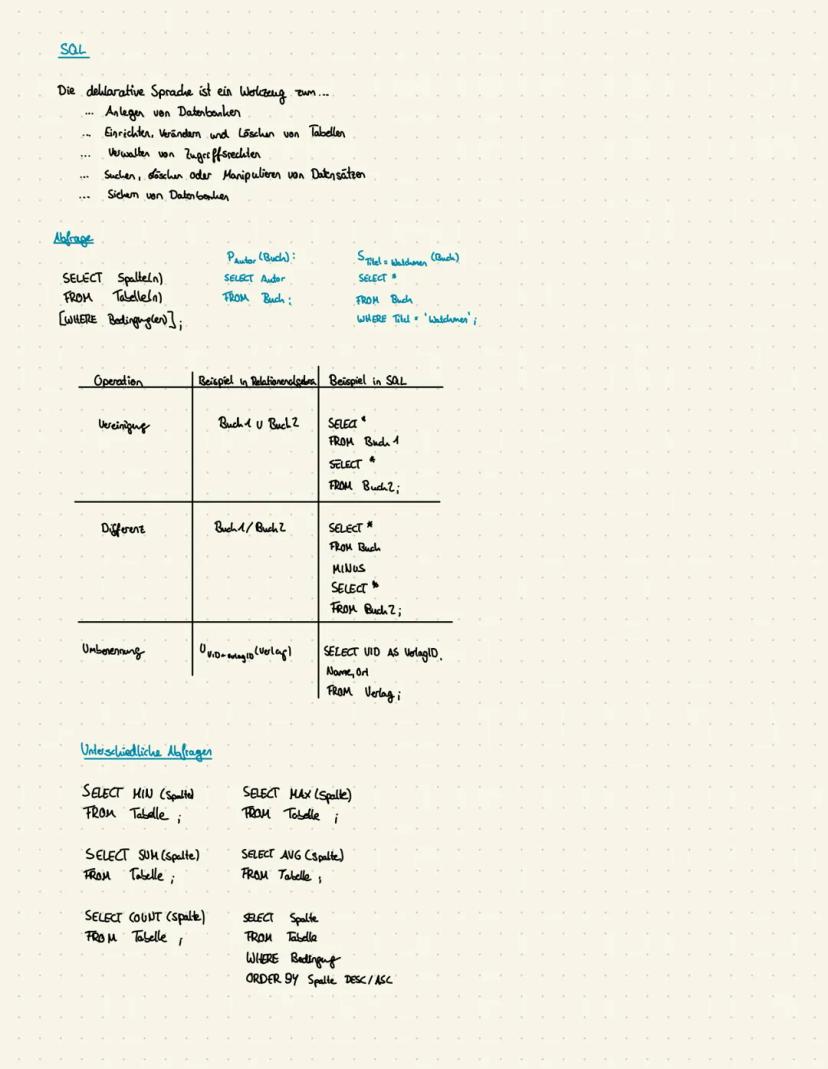 SQL
Die deklarative Sprache ist ein Werkzeug zum...
... Anlegen von Datenbanken
... Einrichten, Verändern und Löschen von Tabellen
... Verwalten von Zugriffsrechten
... Suchen, Löschen oder Manipulieren von Datensätzen
... Sichern von Datenbanken
Abfrage
P Autor (Buch):
S Titel = Watchmen (Buch)
SELECT Spalte(n)
SELECT Autor
SELECT *
FROM Tabelle(n)
FROM Buch;
FROM Buch
[WHERE Bedingung(en)];
WHERE Titel = 'Watchmen';
Operation
Beispiel in Relationenalgebra
Beispiel in SQL
Vereinigung
Buch1 ∪ Buch2
SELECT *
FROM Buch1
SELECT *
FROM Buch2;
Differenz
Buch1/Buch2
SELECT *
FROM Buch
MINUS
SELECT *
FROM Buch2;
Umbenennung
U (Verlag)
SELECT VID AS VerlagID,
Name, Ort
FROM Verlag;
Unterschiedliche Abfragen
SELECT MIN (Spalte)
FROM Tabelle ;
SELECT MAX (Spalte)
FROM Tabelle ;
SELECT SUM (Spalte)
FROM Tabelle ;
SELECT AVG (Spalte)
FROM Tabelle ;
SELECT COUNT (Spalte)
FROM Tabelle ;
SELECT Spalte
FROM Tabelle
WHERE Bedingung
ORDER BY Spalte DESC/ASC